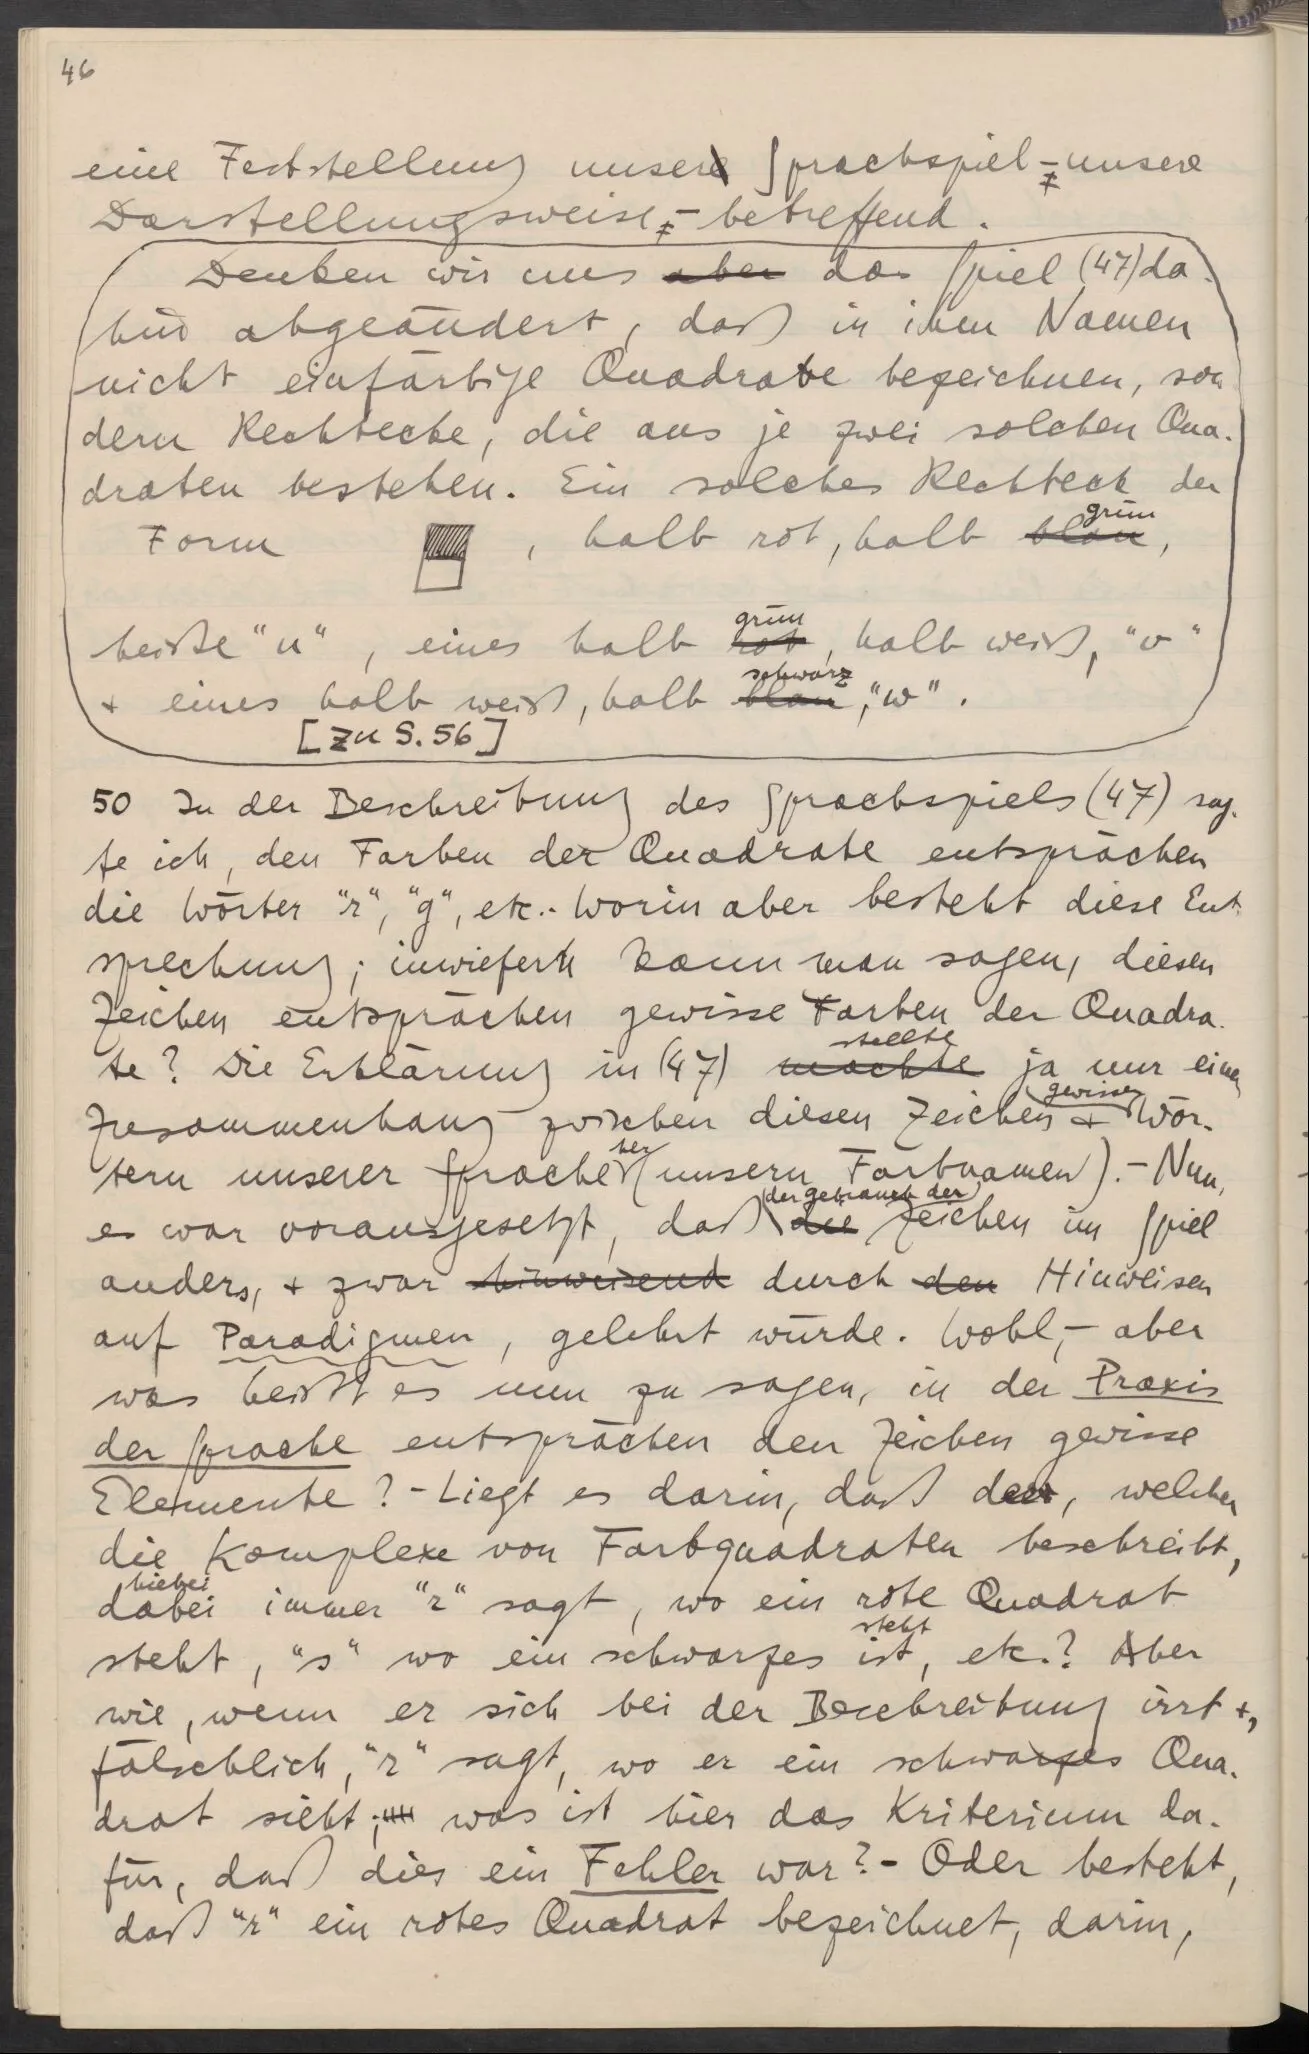 46
eine Feststellung unser Sprachspiel – unsere
Darstellungsweise, – betreffend.
Denken wir uns aber das Spiel (47) da-
hin abgeändert, daß in ihm Namen
nicht einfärbige Quadrate bezeichnen, son
dern Rechtecke, die aus je zwei solchen Qua-
draten bestehen. Ein solches Rechteck der
grün
Form , halb rot, halb blau,
grün
heiße "u", eines halb rot, halb weiß, "v"
schwarz
+ eines halb weiß, halb blau, "w".
[Zu S. 56]
50 In der Beschreibung des Sprachspiels (47) sag-
te ich, den Farben der Quadrate entsprächen
die Wörter "r", "g", etc.. Worin aber besteht diese Ent-
sprechung; inwiefern kann man sagen, diesen
Zeichen entsprächen gewisse Farben der Quadra-
stellte
te? Die Erklärung in (47) machte ja nur einen
gewissen
Zusammenhang zwischen diesen Zeichen + Wör-
her
tern unserer Sprache (unsern Farbnamen). – Nun,
der Gebrauch der
es war vorausgesetzt, daß die Zeichen im Spiel
anders, + zwar hinweisend durch den Hinweisen
auf Paradigmen, gelehrt würde. Wohl, – aber
was heißt es nun zu sagen, in der Praxis
der Sprache entsprächen den Zeichen gewisse
Elemente? – Liegt es darin, daß der, welcher
die Komplexe von Farbquadraten beschreibt,
hiebei
dabei immer "r" sagt, wo ein rote Quadrat
steht
steht, "s" wo ein schwarzes ist, etc.? Aber
wie, wenn er sich bei der Beschreibung irrt +,
fälschlich, "r" sagt, wo er ein schwarzes Qua-
drat sieht; was ist hier das Kriterium da-
für, daß dies ein Fehler war? – Oder besteht,
daß "r" ein rotes Quadrat bezeichnet, darin,